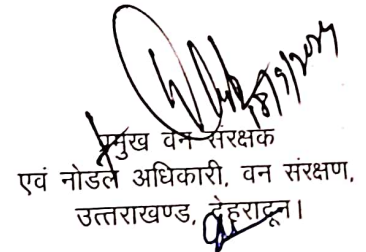 प्रमुख वन संरक्षक
एवं नोडल अधिकारी, वन संरक्षण,
उत्तराखण्ड, देहरादून।